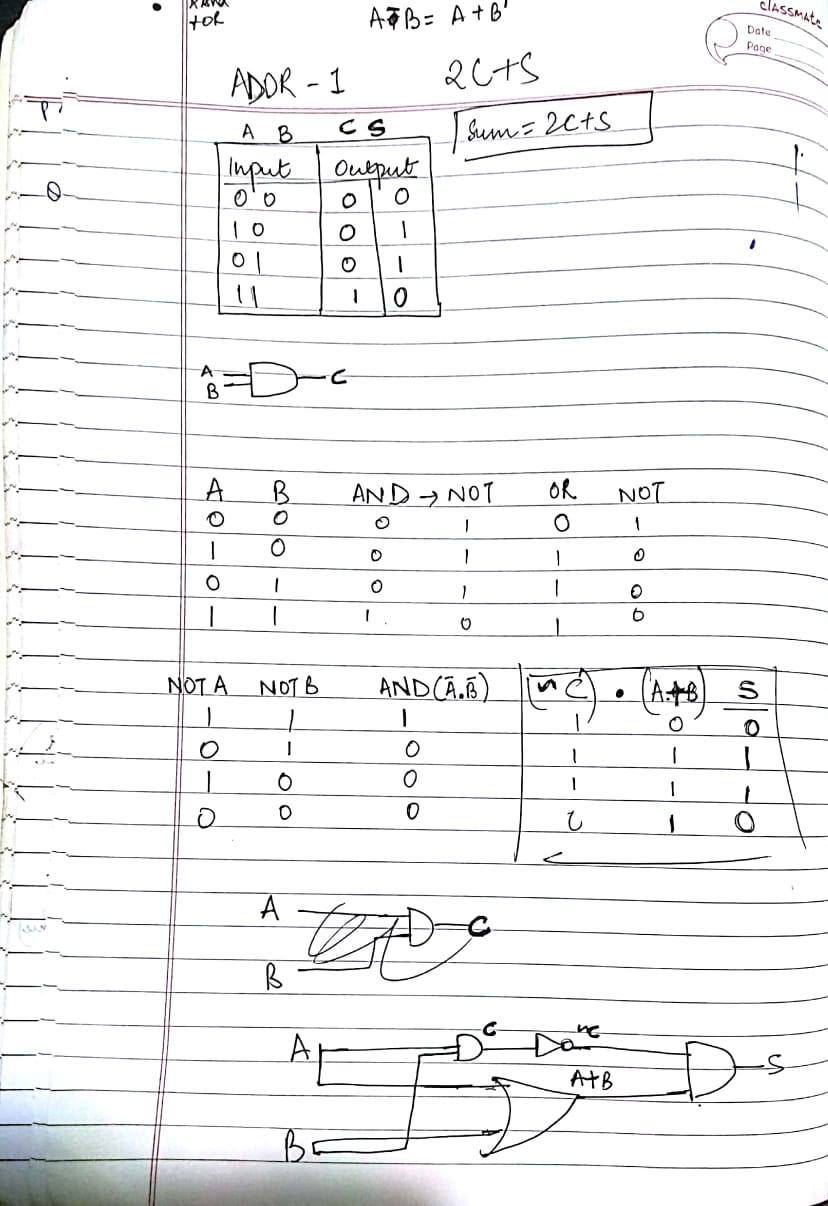 tOR
A+B = A + B'
classmate
Date
Page
ADDR - 1 2C+S
A B C S Sum = 2C+S
Input Output
0 0 0 0
1 0 0 1
0 1 0 1
1 1 1 0
A
B C
A B AND → NOT OR NOT
0 0 0 1 0 1
1 0 0 1 1 0
0 1 0 1 1 0
1 1 1 0 1 0
NOT A NOT B AND (Ā.B̄) (n C) . (A+B) S
1 1 1 1 0 0
0 1 0 1 1 1
1 0 0 1 1 1
0 0 0 1 0
A C
B
A C nc S
A+B
B